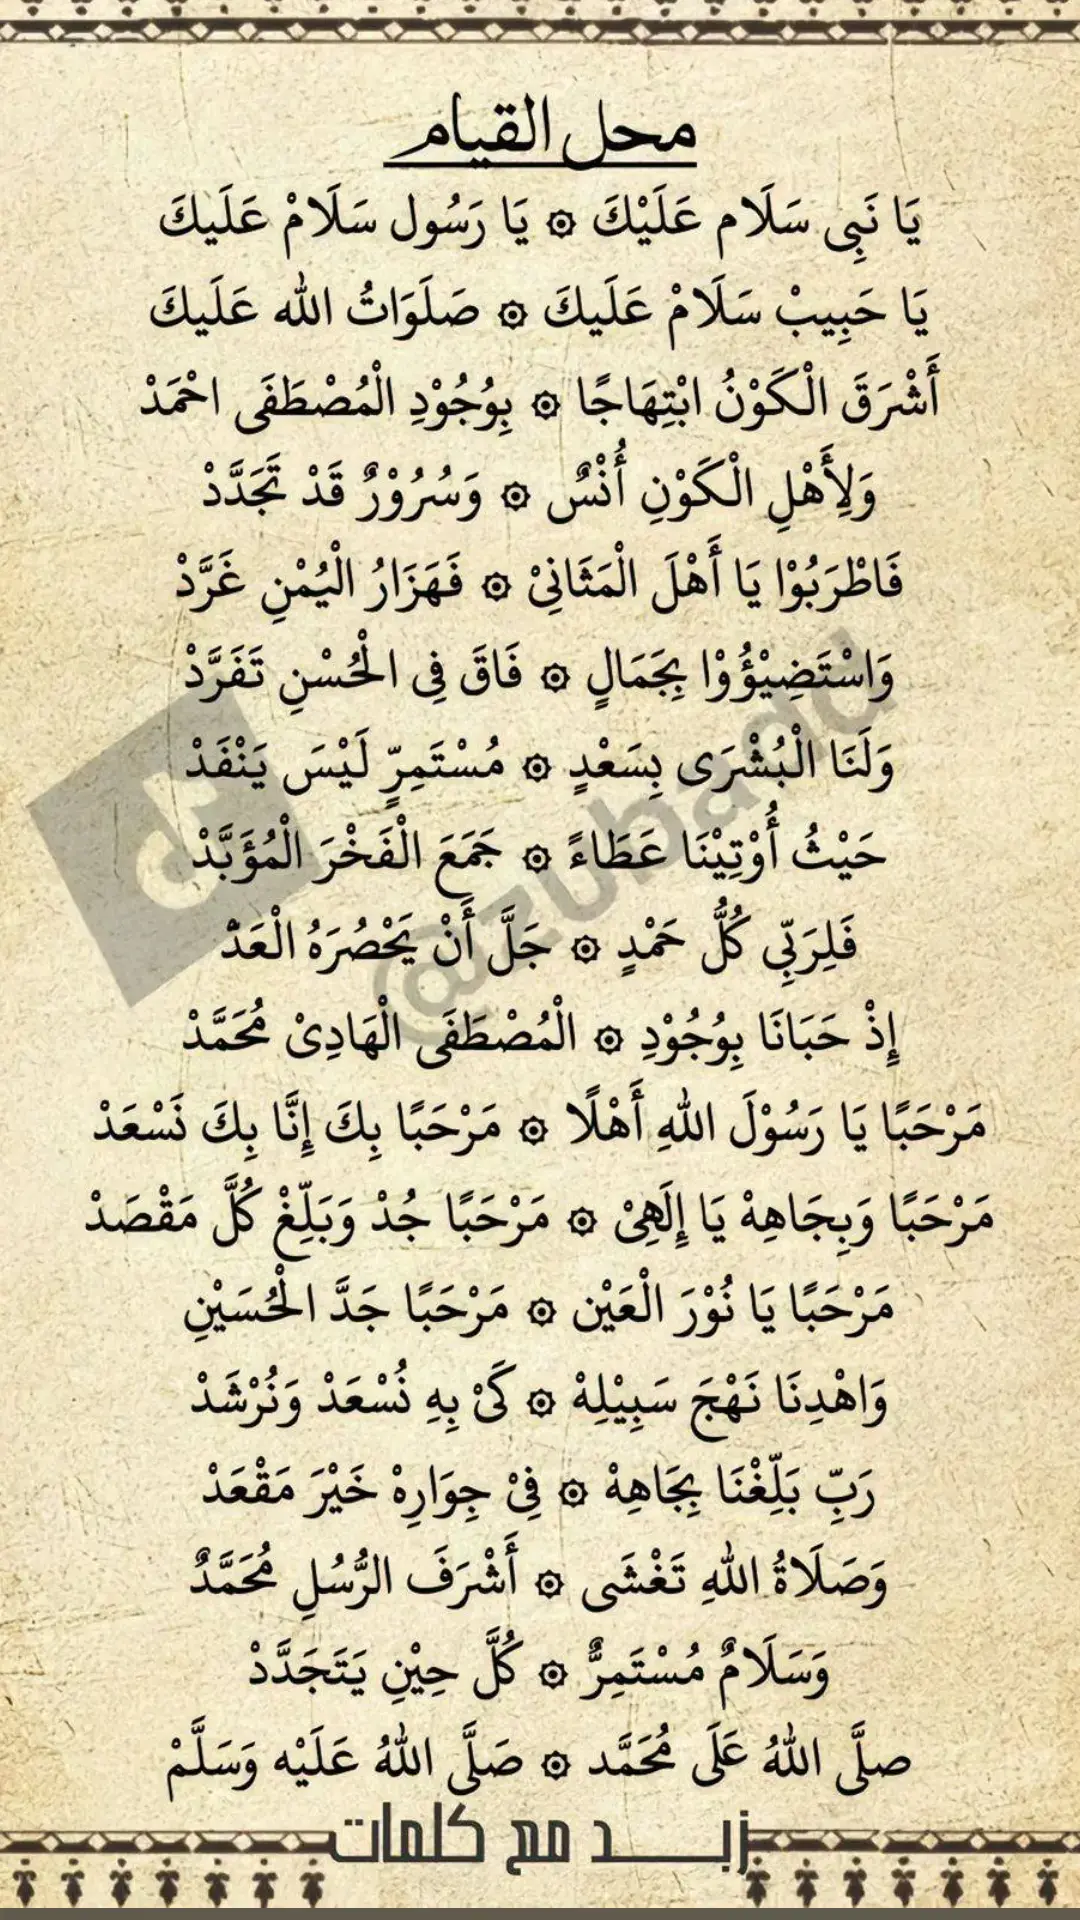 محل القيام
يَا نَبِى سَلَام عَلَيْكَ ۞ يَا رَسُول سَلَامْ عَلَيكَ
يَا حَبِيبْ سَلَامْ عَلَيكَ ۞ صَلَوَاتُ الله عَلَيكَ
أَشْرَقَ الْكَوْنُ ابْتِهَاجًا ۞ بِوُجُوْدِ الْمُصْطَفَى احْمَدْ
وَلِأَهْلِ الْكَوْنِ أُنْسٌ ۞ وَسُرُوْرٌ قَدْ تَجَدَّدْ
فَاطْرَبُوْا يَا أَهْلَ الْمَثَانِىْ ۞ فَهَزَارُ الْيُمْنِ غَرَّدْ
وَاسْتَضِيْؤُوْا بِجَمَالٍ ۞ فَاقَ فِى الْحُسْنِ تَفَرَّدْ
وَلَنَا الْبُشْرَى بِسَعْدٍ ۞ مُسْتَمِرٍّ لَيْسَ يَنْفَدْ
حَيْثُ أُوْتِيْنَا عَطَاءً ۞ جَمَعَ الْفَخْرَ الْمُؤَبَّدْ
فَلِرَبِّى كُلُّ حَمْدٍ ۞ جَلَّ أَنْ يَحْصُرَهُ الْعَدّْ
إِذْ حَبَانَا بِوُجُوْدِ ۞ الْمُصْطَفَى الْهَادِىْ مُحَمَّدْ
مَرْحَبًا يَا رَسُوْلَ اللهِ أَهْلًا ۞ مَرْحَبًا بِكَ إِنَّا بِكَ نَسْعَدْ
مَرْحَبًا وَبِجَاهِهْ يَا إِلَهِىْ ۞ مَرْحَبًا جُدْ وَبَلِّغْ كُلَّ مَقْصَدْ
مَرْحَبًا يَا نُوْرَ الْعَيْن ۞ مَرْحَبًا جَدَّ الْحُسَيْنِ
وَاهْدِنَا نَهْجَ سَبِيْلِهْ ۞ كَىْ بِهِ نُسْعَدْ وَنُرْشَدْ
رَبِّ بَلِّغْنَا بِجَاهِهْ ۞ فِىْ جِوَارِهْ خَيْرَ مَقْعَدْ
وَصَلَاةُ اللهِ تَغْشَى ۞ أَشْرَفَ الرُّسُلِ مُحَمَّدٌ
وَسَلَامٌ مُسْتَمِرٌّ ۞ كُلَّ حِيْنِ يَتَجَدَّدْ
صلَّى اللهُ عَلَى مُحَمَّد ۞ صَلَّى اللهُ عَلَيْه وَسَلَّمْ
زبد مع كلمات